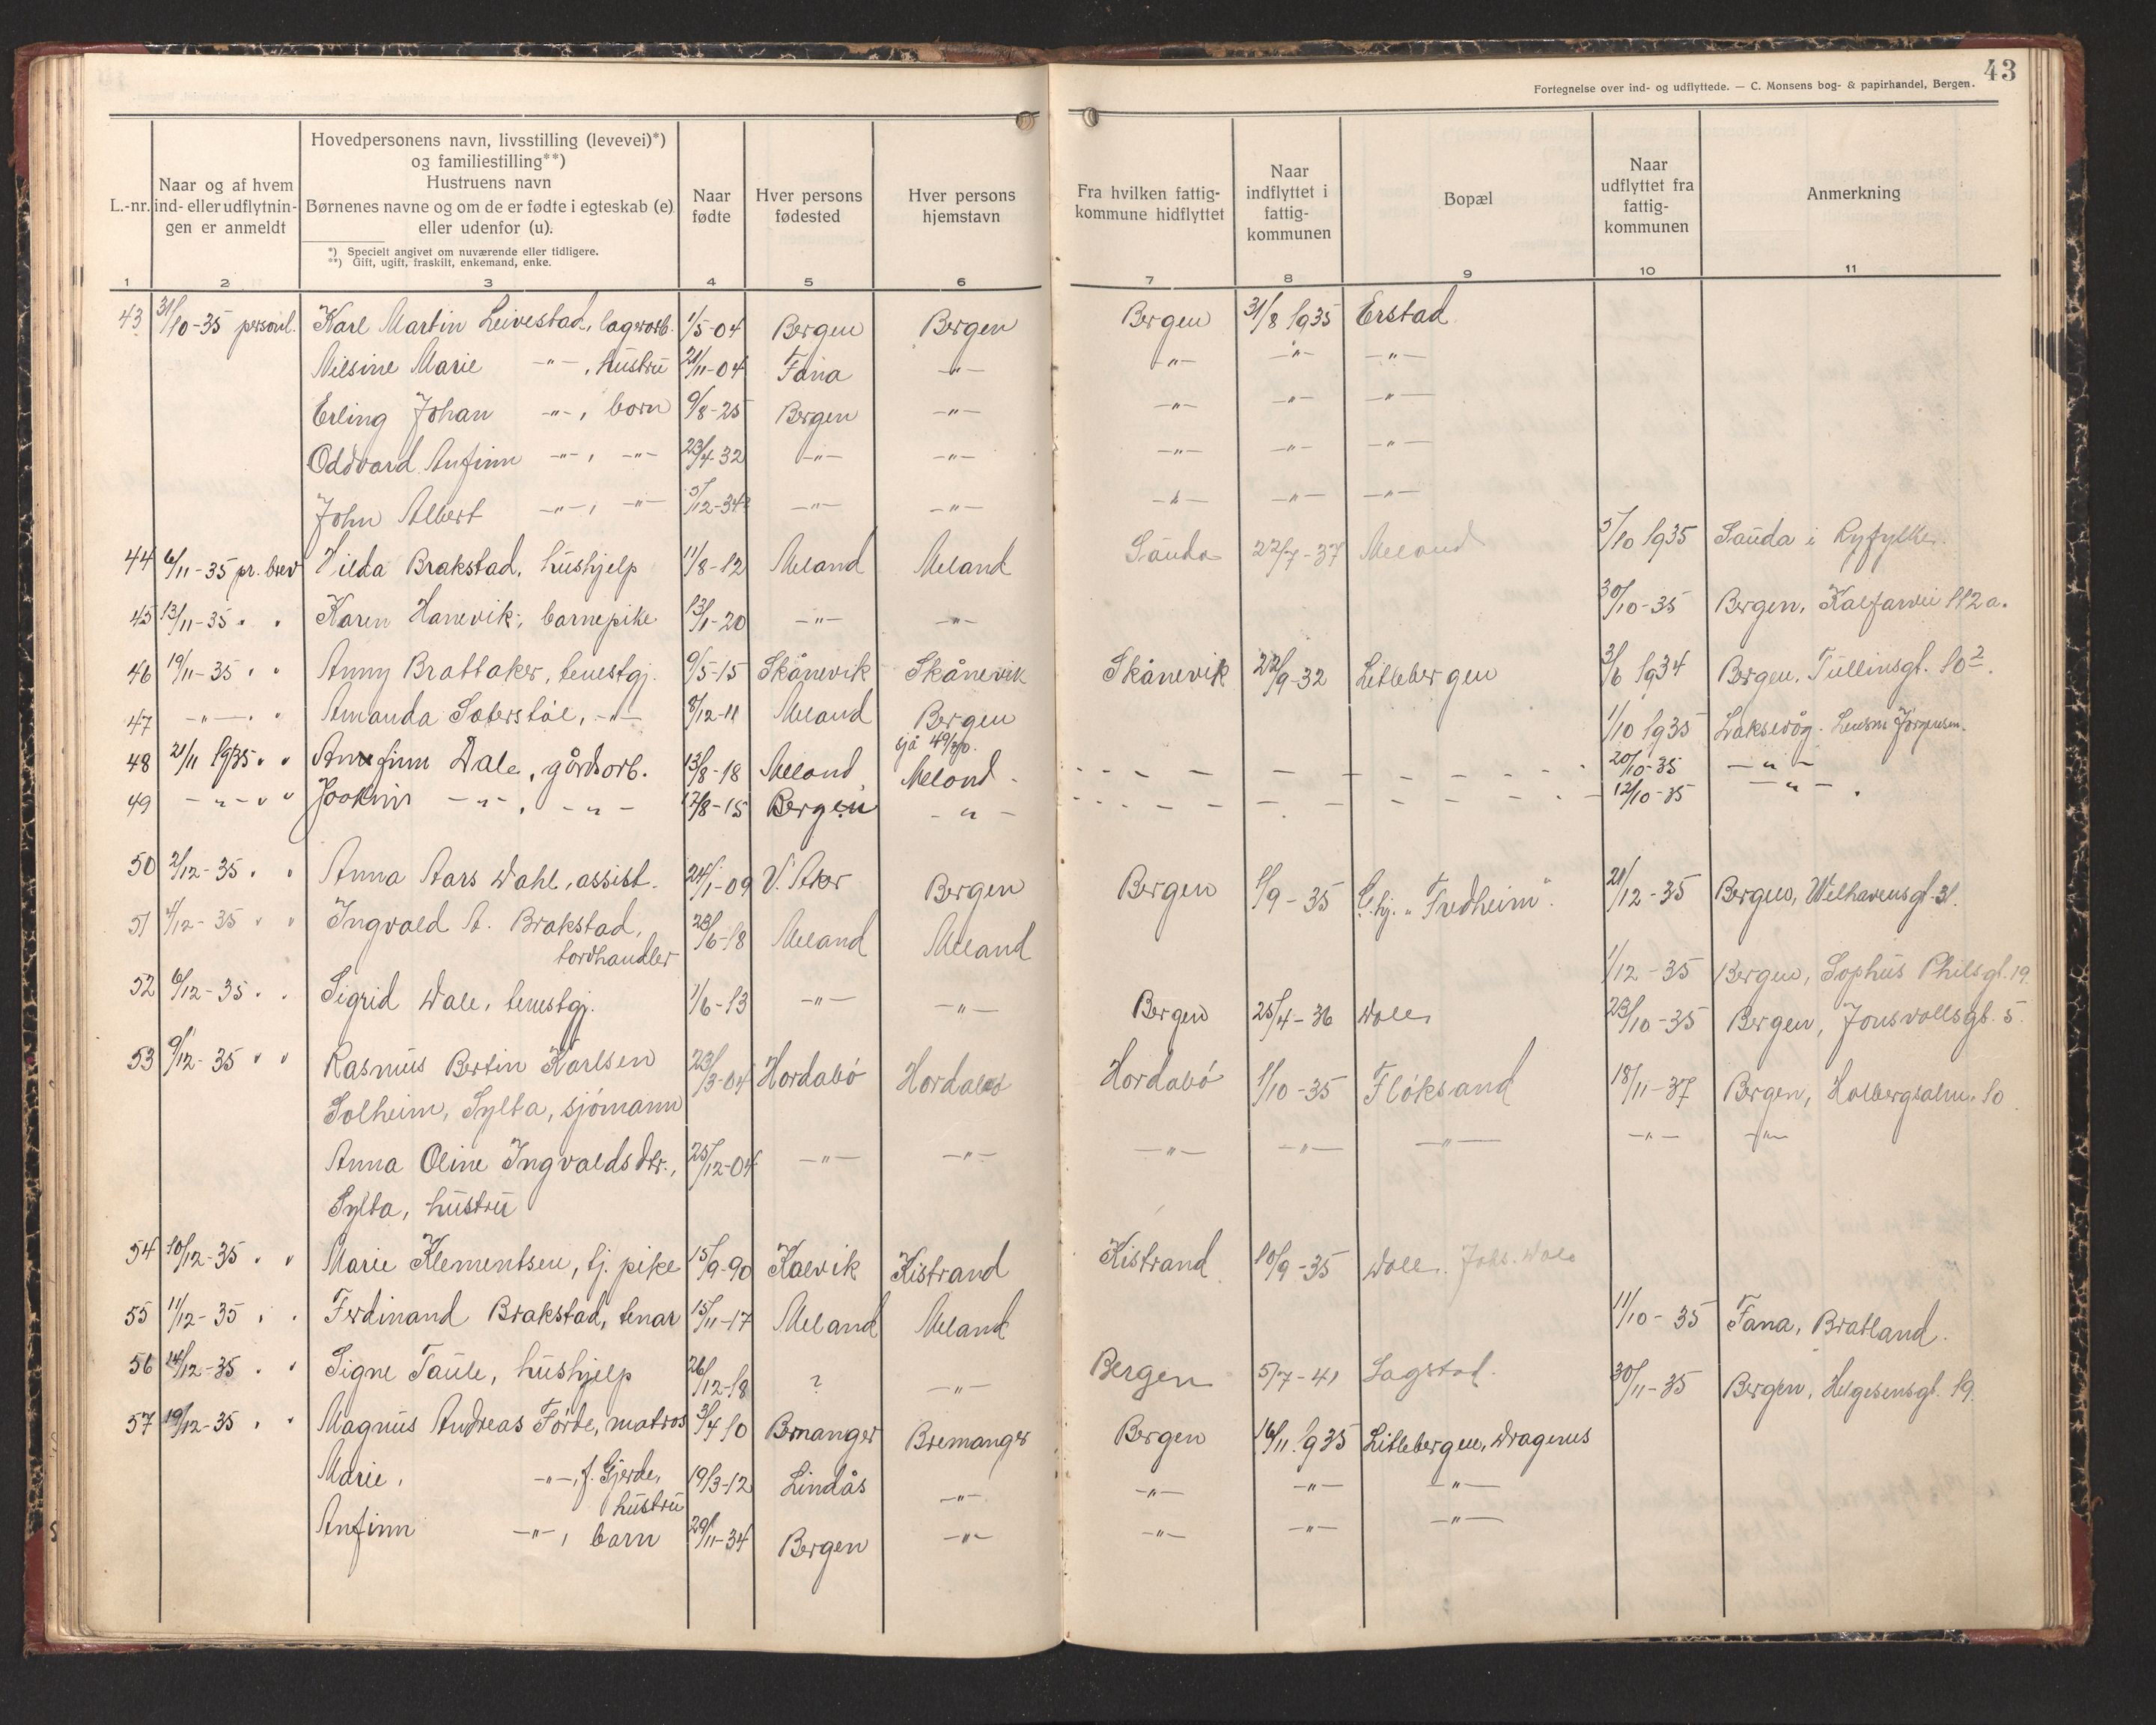 43
Fortegnelse over ind- og udflyttede. — C. Monsens bog- & papirhandel, Bergen.
L.-nr.
Naar og af hvem ind- eller udflytnin- gen er anmeldt
Hovedpersonens navn, livsstilling (levevei)*)
og familiestilling**)
Hustruens navn
Børnenes navne og om de er fødte i egteskab (e)
eller udenfor (u).
*) Specielt angivet om nuværende eller tidligere.
**) Gift, ugift, fraskilt, enkemand, enke.
Naar fødte
Hver persons fødested
Hver persons hjemstavn
Fra hvilken fattig- kommune hidflyttet
Naar indflyttet i fattig- kommunen
Bopæl
Naar udflyttet fra fattig- kommunen
Anmerkning
1 2 3 4 5 6 7 8 9 10 11
43 31/10-35 personl. Karl Martin Leivestad, lagerarb. 1/5-04 Bergen Bergen Bergen 31/8 1935 Erstad
Nilsine Marie -"-, hustru 21/11-04 Fana -"- -"- -"- -"-
Erling Johan -"-, born 9/8-25 Bergen -"- -"- -"- -"-
Oddvard Anfinn -"-, -"- 23/4-32 -"- -"- -"- -"- -"-
John Albert -"-, -"- 5/12-34 -"- -"- -"- -"- -"-
44 6/11-35 pr. brev Hilda Brakstad, hushjelp 11/8-12 Meland Meland Sauda 22/7-37 Meland 5/10 1935 Sauda i Ryfylke.
45 13/11-35 " " Karen Hanevik, barnepike 13/1-20 -"- -"- 30/10-35 Bergen, Kalfarvei 112 a.
46 19/11-35 " " Anny Brattaker, tenestgj. 9/5-15 Skånevik Skånevik Skånevik 22/9-32 Litlebergen 3/6 1934 Bergen, Tullinsgt. 10².
47 -"- " " Amanda Sæterstøl, -"- 8/12-11 Meland Bergen 1/10 1935 Laksevåg. Lensm Jørgensen.
sjå 49/30.
48 21/11 1935 " " Annfinn Dale, gårdsarb. 13/8-18 Meland Meland - - - - 20/10-35 -"-
49 -"- " " Joakim -"-, -"- 17/8-15 Bergen -"- - - - - 12/10-35 -"-
50 2/12-35 " " Anna Aars Dahl, assist. 24/1-09 V. Aker Bergen Bergen 1/9-35 G.hj. "Fredheim". 21/12-35 Bergen, Welhavensgt. 31.
51 4/12-35 " " Ingvald A. Brakstad,
tordhandler 23/6-18 Meland Meland 1/12-35 Bergen, Sophus Philsgt. 19.
52 6/12-35 " " Sigrid Dale, tenestgj. 1/6-13 -"- -"- Bergen 25/4-36 Dale 23/10-35 Bergen, Jonsvollsgt. 5.
53 9/12-35 " " Rasmus Bertin Karlsen 23/3-04 Hordabø Hordabø Hordabø 1/10-35 Fløksand 18/11-37 Bergen, Holbergsalm. 10
Solheim, Sylta, sjømann
Anna Oline Ingvaldsdtr., 25/12-04 -"- -"- -"- -"- -"- -"- -"-
Sylta, hustru
54 10/12-35 " " Marie Klementsen, tj. pike 15/9-90 Kalvik Kistrand Kistrand 10/9-35 Dale. Johs. Dale
55 11/12-35 " " Ferdinand Brakstad, tenar 15/11-17 Meland Meland 11/10-35 Fana, Bratland.
56 14/12-35 " " Signe Taule, hushjelp 26/12-18 ? -"- Bergen 5/7-41 Sagstad. 30/11-35 Bergen, Helgesensgt. 19.
57 19/12-35 " " Magnus Andreas Førde, matros 3/4 10 Brnanger Bremanger Bergen 16/11.1935 Litlebergen, Dragenes
Marie, -"-, f. Gjerde, 19/3-12 Lindås -"- -"- -"- -"-
hustru
Anfinn -"-, barn 29/11-34 Bergen -"- -"- -"- -"-